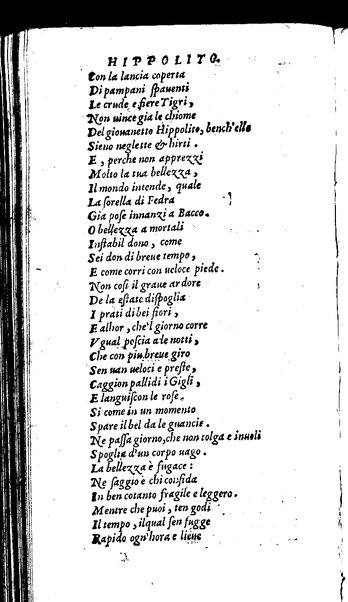 HIPPOLITO.
Con la lancia coperta
Di pampani spauenti
Le crude e fiere Tigri,
Non uince gia le chiome
Del giouanetto Hippolito, bench'elle
Sieno neglette & hirti.
E, perche non apprezzi
Molto la tua bellezza,
Il mondo intende, quale
La sorella di Fedra
Gia pose innanzi a Bacco.
O bellezza a mortali
Instabil dono, come
Sei don di breue tempo,
E come corri con ueloce piede.
Non cosi il graue ardore
De la estate dispoglia
I prati di bei fiori,
E alhor, che'l giorno corre
Vgual poscia ale notti,
Che con piu breue giro
Sen uan ueloci e preste,
Caggion pallidi i Gigli,
E languiscon le rose.
Si come in un momento
Spare il bel da le guancie.
Ne passa giorno, che non tolga e inuoli
Spoglia d'un corpo uago.
La bellezza è fugace:
Ne saggio è chi confida
In ben cotanto fragile e leggero.
Mentre che puoi, ten godi
Il tempo, ilqual sen fugge
Rapido ogn'hora e lieue